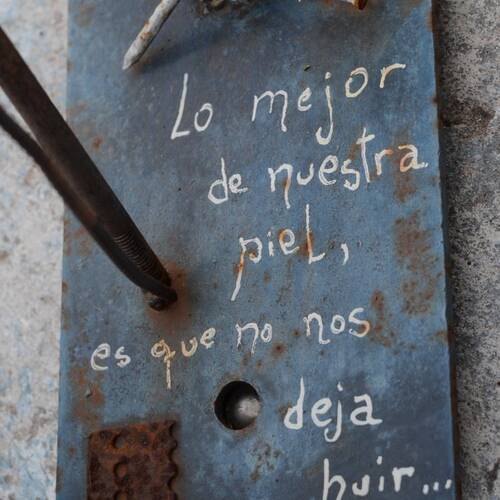 Lo mejor
de nuestra
piel,
es que no nos
deja
huir...